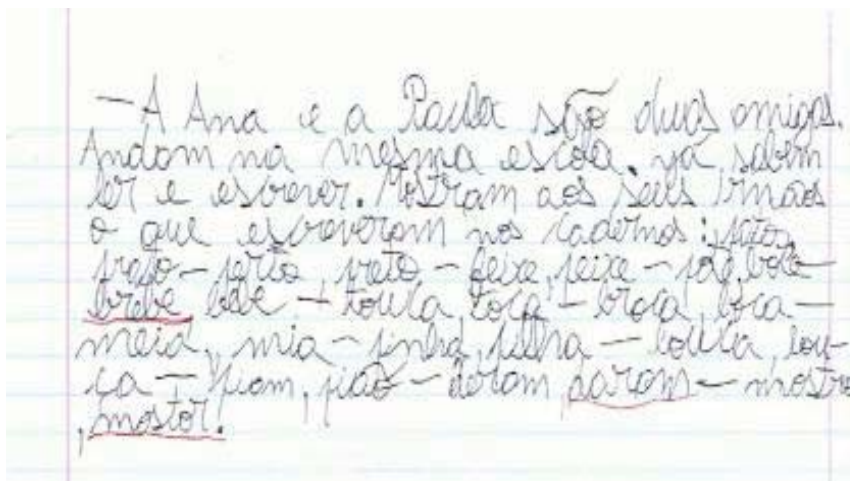 — A Ana e a Paula são duas amigas.
Andam na mesma escola. já sabem
ler e escrever. Mostram aos seus irmãos
o que escreveram nos cadernos:
prato - perto, preto -
brebe bebe - touca, toca - broca, boca -
meia, mia - pinha, - louca, lou-
ça - piom, pião - deram, - mostro
, mostor.